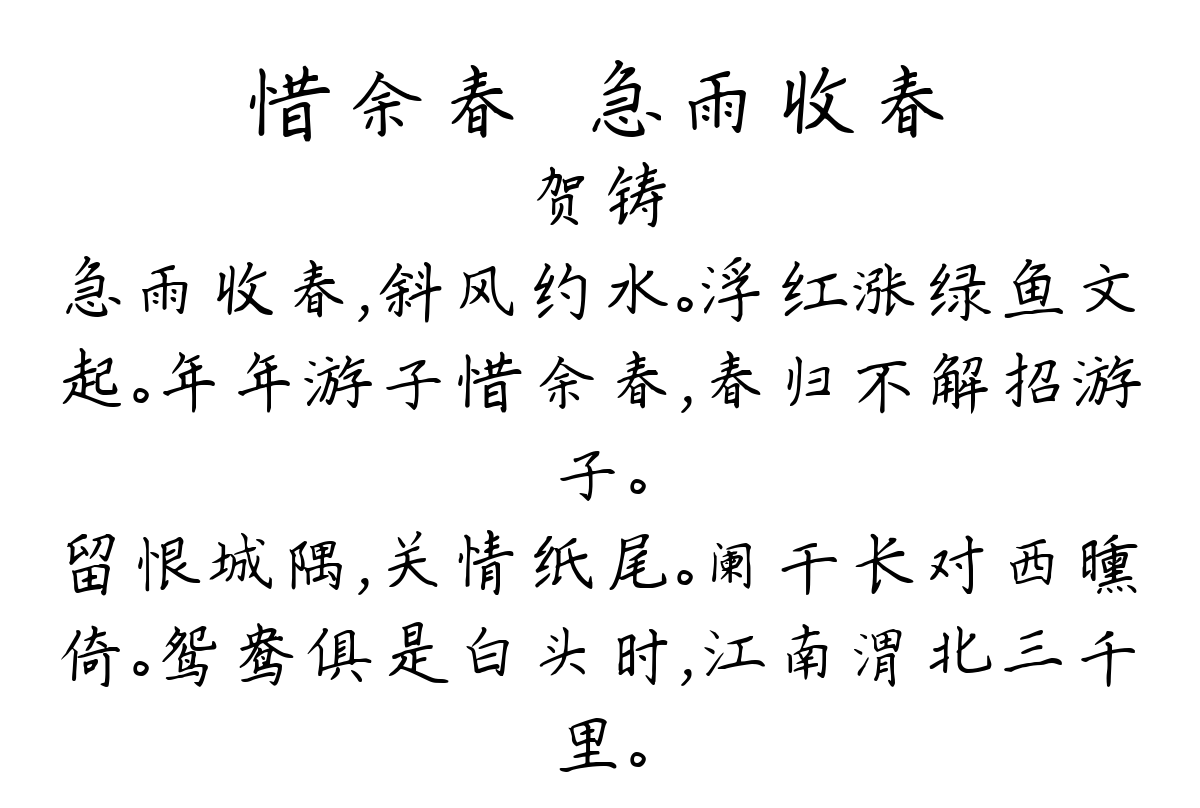 惜余春 急雨收春
贺铸
急雨收春,斜风约水。浮红涨绿鱼文
起。年年游子惜余春,春归不解招游
子。
留恨城隅,关情纸尾。阑干长对西曛
倚。鸳鸯俱是白头时,江南渭北三千
里。